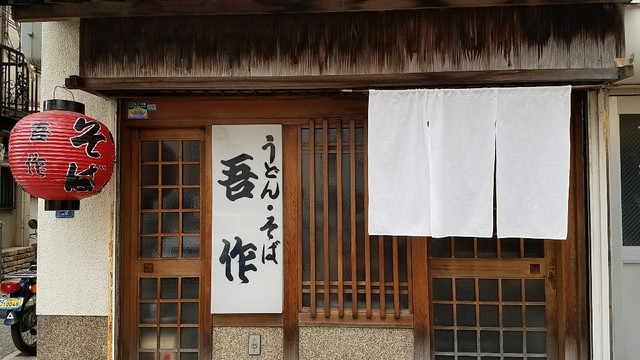 そば
吾作
うどん・そば
吾作